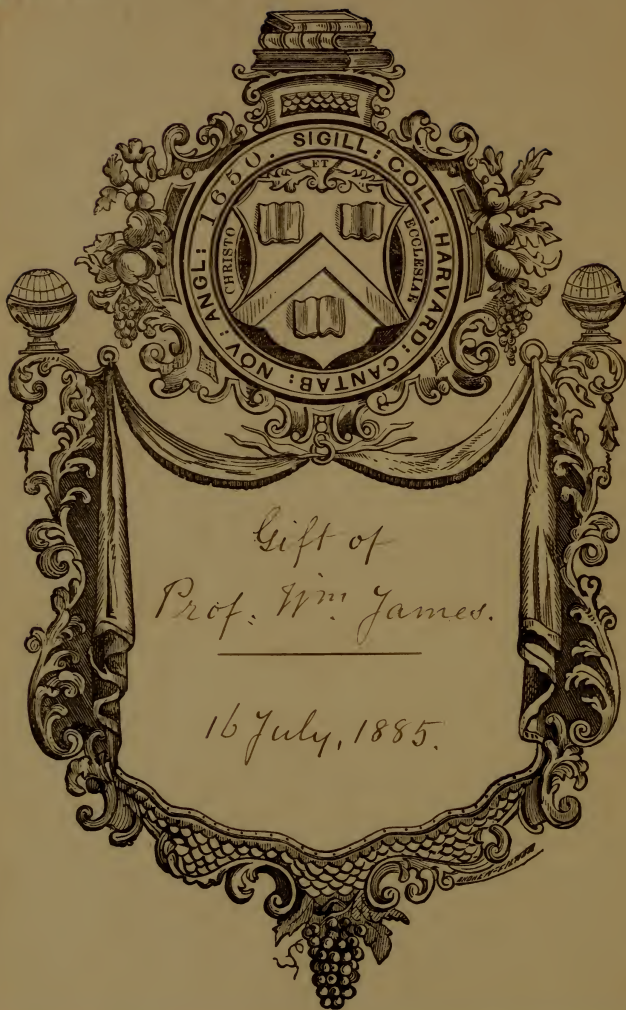 SIGILL: COLL: HARVARD: CANTAB: NOV: ANGL: 1650.
ET
CHRISTO
ECCLESIAE
Gift of
Prof: Wm. James.
16 July, 1885.